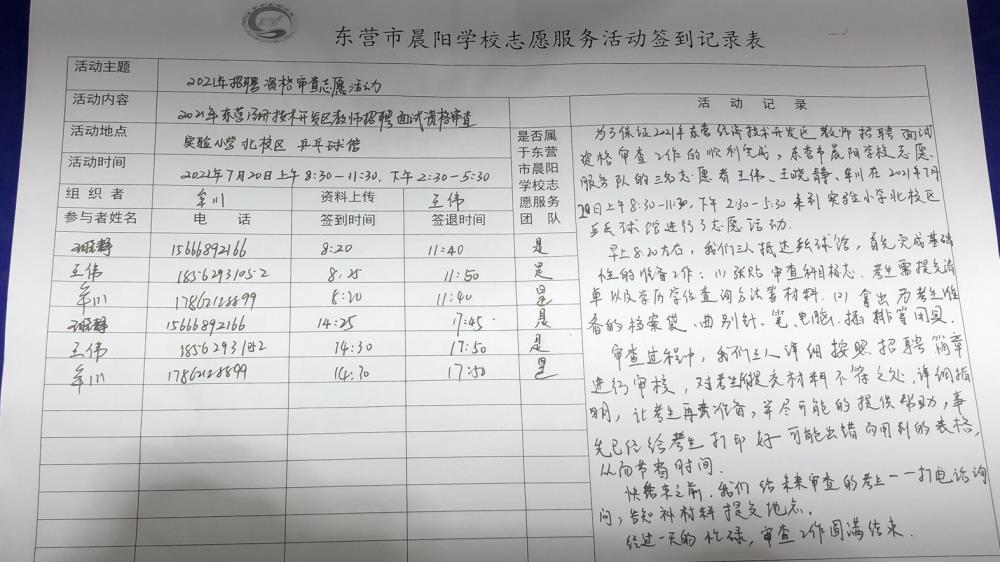 东营市晨阳学校志愿服务活动签到记录表
活动主题 2021年招聘资格审查志愿活动
活动内容 2021年东营经济技术开发区教师招聘面试资格审查
活动地点 实验小学北校区 乒乓球馆
活动时间 2021年7月20日上午8:30-11:30,下午2:30-5:30
组织者 牟川 资料上传 王伟
是否属于东营市晨阳学校志愿服务团队
参与者姓名 电话 签到时间 签退时间
王晓静 15666892166 8:20 11:40 是
王伟 18562931052 8:25 11:50 是
牟川 17862128899 8:20 11:40 是
王晓静 15666892166 14:25 17:45 是
王伟 185629312 14:30 17:50 是
牟川 17862128899 14:30 17:50 是
活动记录
为了保证2021年东营经济技术开发区教师招聘面试
资格审查工作的顺利完成,东营市晨阳学校志愿
服务队的三名志愿者王伟、王晓静、牟川在2021年7月
20日上午8:30-11:30,下午2:30-5:30来到实验小学北校区
乒乓球馆进行了志愿活动.
早上8:20左右,我们三人抵达乒乓球馆,首先完成基础
性的准备工作:(1)张贴审查科目标志、考生需提交清
单以及学历学位查询方法等材料.(2)拿出为考生准
备的档案袋、曲别针、笔、电脑、插排等用具.
审查过程中,我们三人详细按照招聘简章
进行审核,对考生所提交材料不符之处,详细指
明,让考生再去准备,并尽可能的提供帮助,事
先已经给考生打印好可能出错而用到的表格,
从而节省时间.
快结束之前,我们给未来审查的考生一一打电话询
问,告知补材料提交地点.
经过一天的忙碌,审查工作圆满结束.